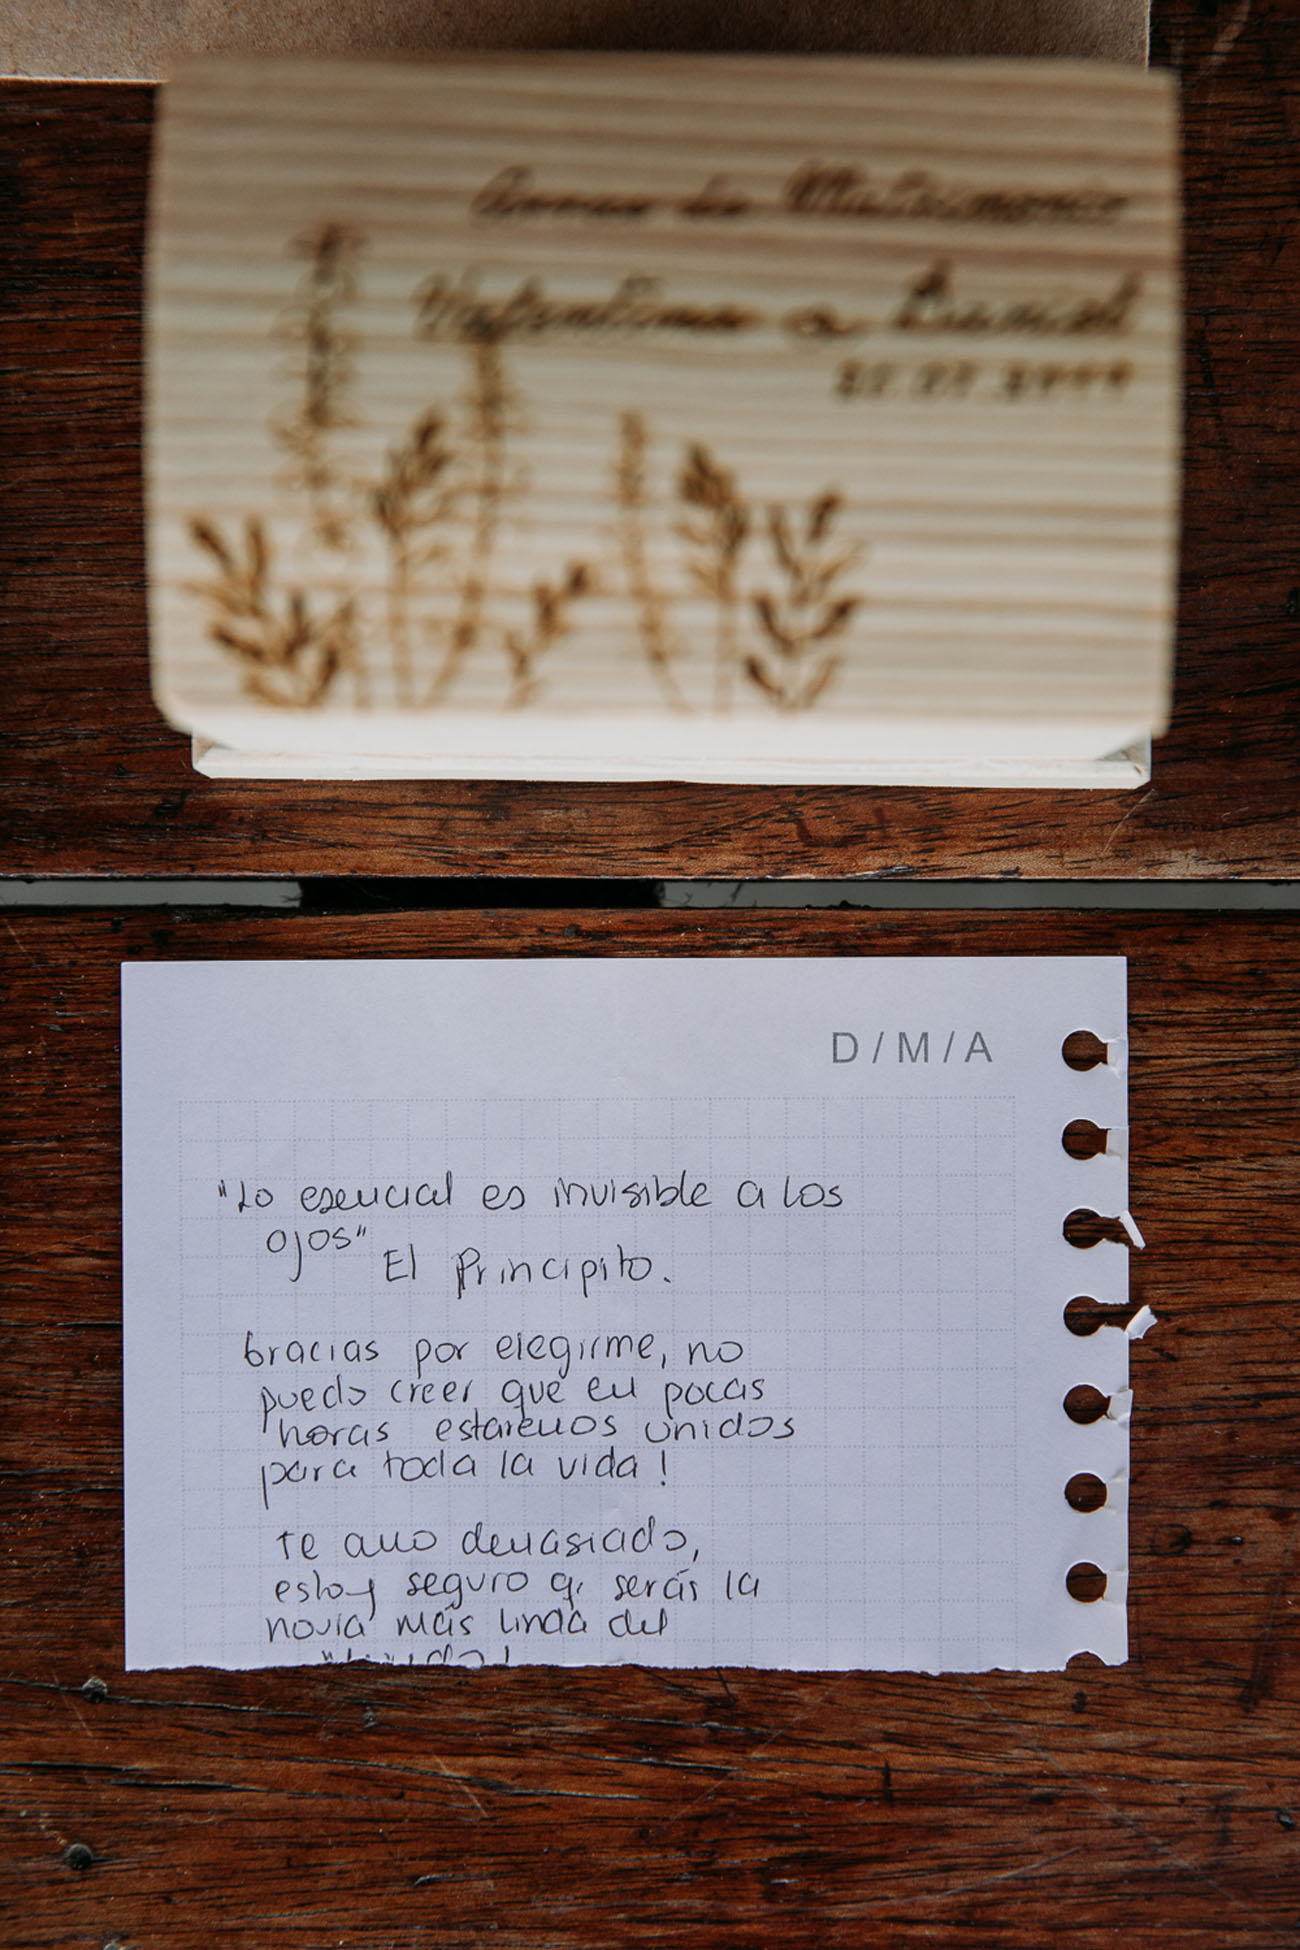 Matrimonio
Valentina a Daniel
D/M/A
"Lo esencial es invisible a los
ojos"
El Principito.
Gracias por elegirme, no
puedo creer que en pocas
horas estaremos unidos
para toda la vida!
Te amo demasiado,
estoy seguro q. serás la
novia más linda del